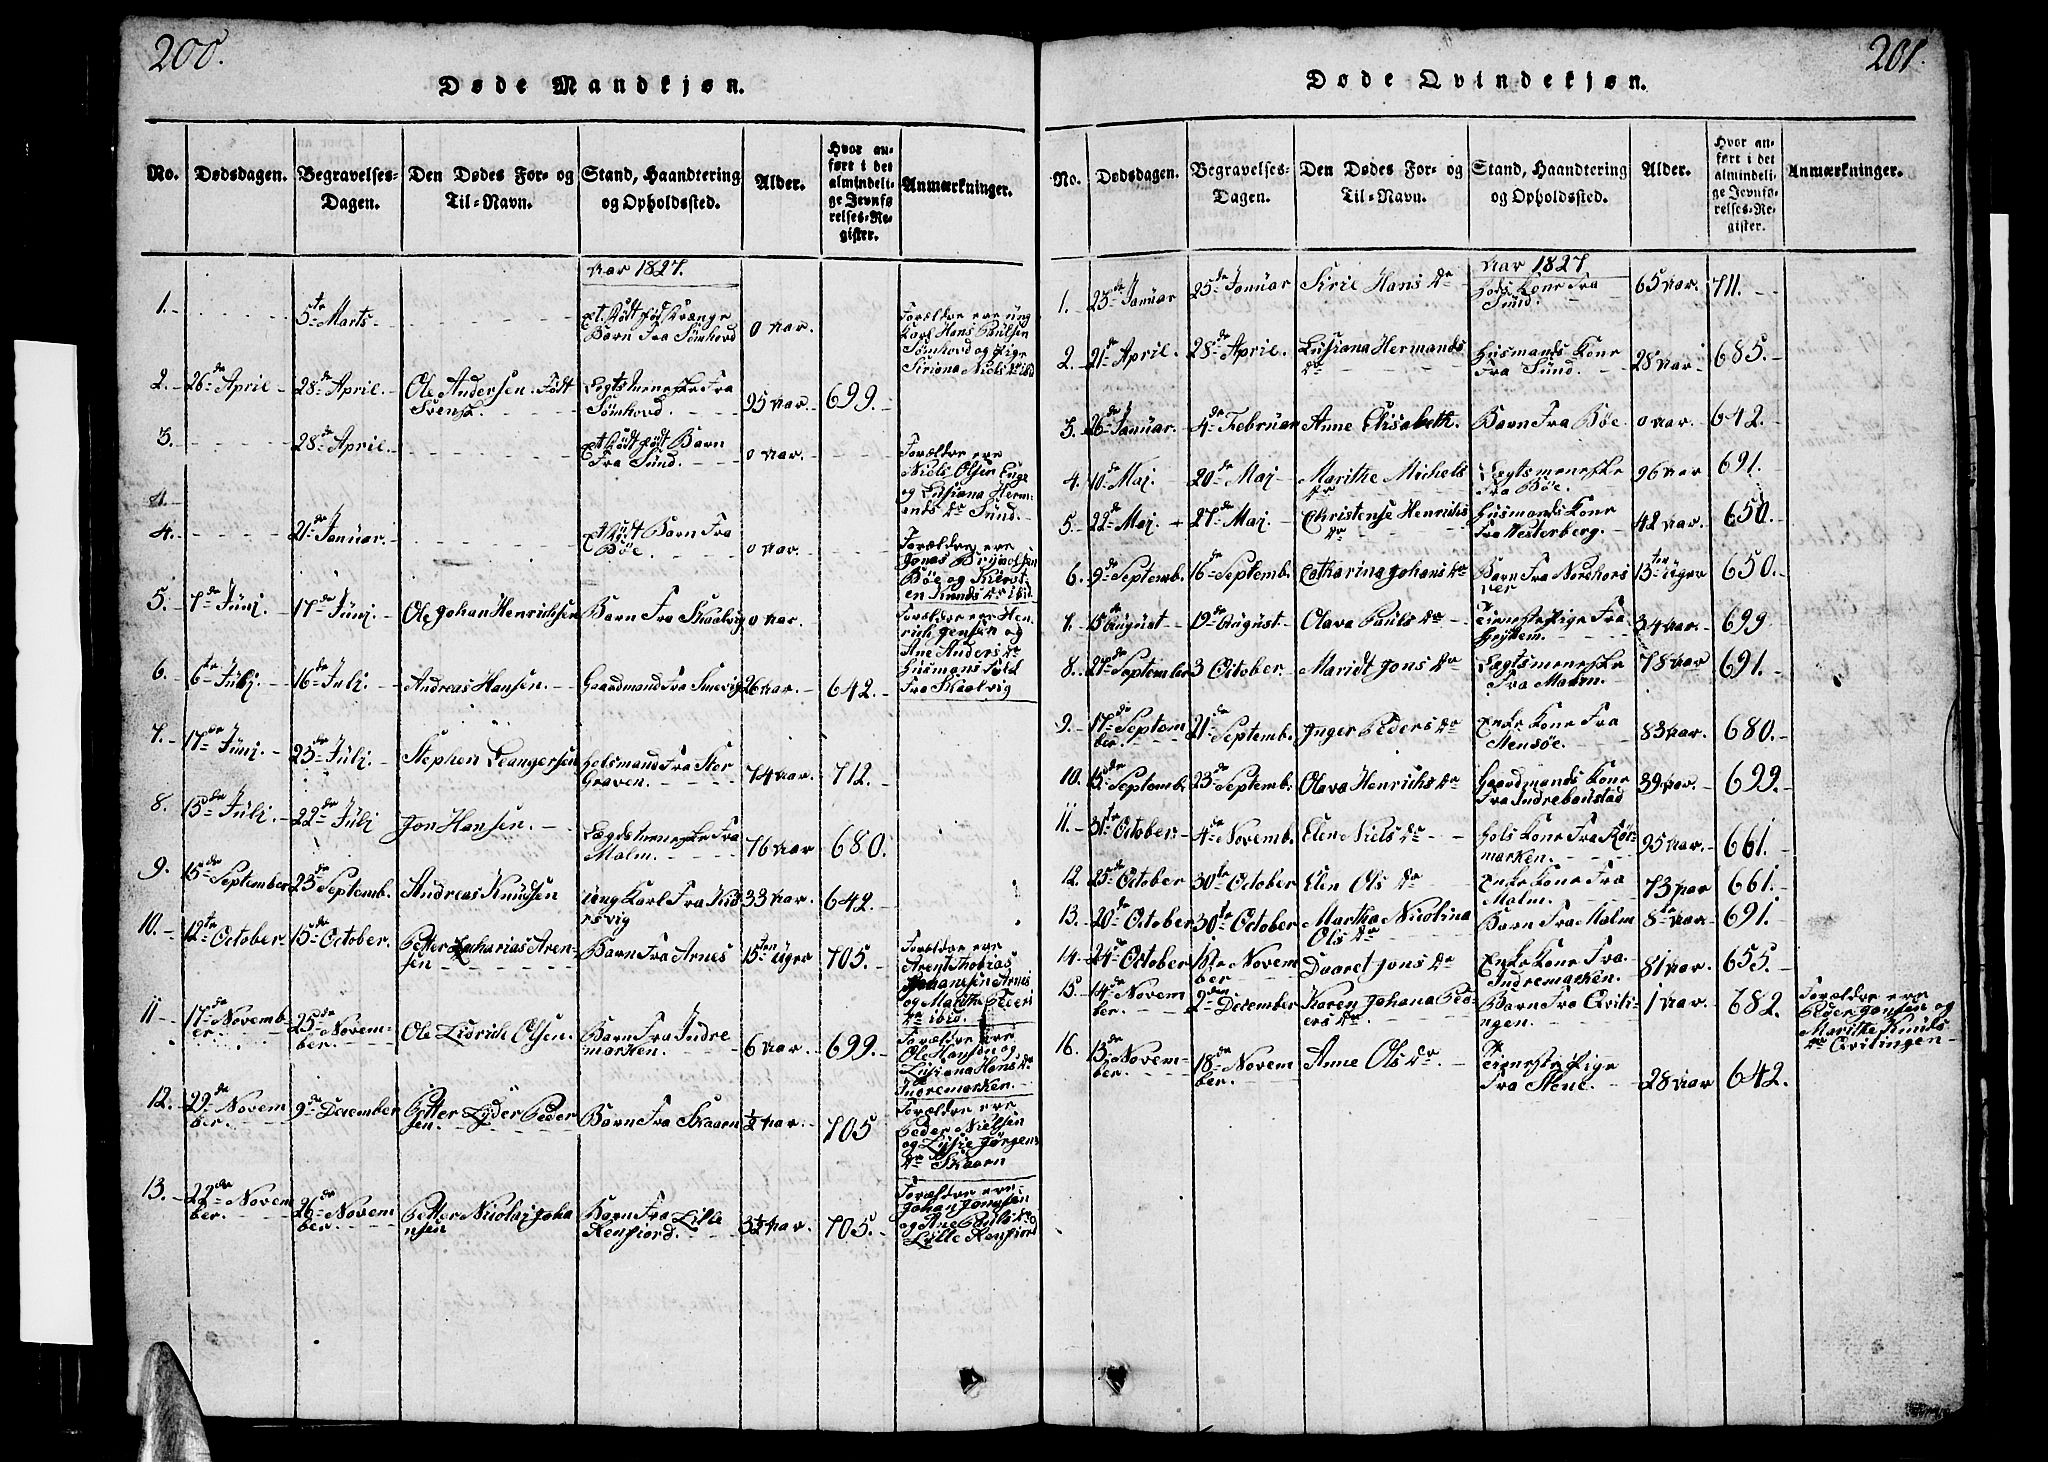 200.
Døde Mandkjøn.
No. Dødsdagen. Begravelses-Dagen. Den Dødes For- og Til-Navn. Stand, Haandtering og Opholdssted. Alder. Hvor anført i det almindelige Jevnførelses-Register. Anmærkninger.
Aar 1827.
1. 5te Marts Et dødfødt Barn Fra Sømhovd 0 Aar. Forældre ere ung Karl Hans Paulsen Sømhovd og Pige Siriana Niels Dr ibid
2. 26de April 28de April. Ole Andersen Født Svensk. Lægtsmeneske Fra Sømhovd. 95 Aar. 699.
3. 28de April. Et dødfødt Barn Fra Sund. 0 Aar. Forældre ere Niels Olsen Enge og Lusiana Hermands Dr Sund.
4.
4. 21de Januar. Barn Fra Bøe. 0 Aar. Forældre ere Jonas Bryvolsen Bøe og Kiersten Knuds Dr ibid
5. 7de Junj. 17de Junj. Ole Johan Henrichsen Barn Fra Skaalvig 0 Aar. Forældre ere Henrich Jensen og Ane Anders Dr Husmans Fold Fra Skaalvig
6. 6te Julj. 16de Julj. Andreas Hansen. Gaardmand Fra Smevig 26 Aar. 642.
7. 17de Junj. 23de Julj. Stephen Leangersen Holsmand Fra Stor Graven. 74 Aar. 712.
8. 15de Julj. 22de Julj Jon Hansen. Lægdsmeneske Fra Malm. 76 Aar 680.
9. 15de September 23de Septemb. Andreas Knudsen ung Karl Fra Kidrsvig 33 Aar. 642.
10. 12te October. 15de October. Petter Zacharias Arensen Barn Fra Arnes 15ten Uger 705. Forældre ere Arent Thobias Johansen Arnes og Marith Peers Dr ibid.
11 17de November. 25de November. Ole Lidrich Olsen. Barn Fra Indremarken. 6 Aar. 699. Forældre ere Ole Hansen og Lusiana Hans Dr Indremarken.
12. 29de November. 9de December Petter Lyder Pedersen. Barn Fra Skaarn ½ Aar. 705 Forældre ere Peder Nielsen og Lysie Jørgens Dr Skaarn
13. 22de November. 26de November. Petter Nicolaj Johansen Barn Fra Lille Renfiord. 3½ Aar. 705. Forældre ere Johan Jonsen og Ane Pauls Dr Lille Renfiord
201.
Døde Qvindekjøn.
No. Dødsdagen. Begravelses-Dagen. Den Dødes For- og Til-Navn. Stand, Haandtering og Opholdssted. Alder. Hvor anført i det almindelige Jevnførelses-Register. Anmærkninger.
Aar 1827
1. 23de Januar 25de Januar Sirie Hans Dr Hols Kone Fra Sund. 65 Aar. 711.
2. 21de April. 28de April. Lusiana Hermands Dr Husmands Kone Fra Sund. 28 Aar 685.
3. 26de Januar. 4de Februar Anne Elisabeth. Barn Fra Bøe. 0 Aar. 642.
4. 10de Maj. 20de Maj Marithe Michels Dr Lægtsmeneske Fra Bøe. 96 Aar 691.
5. 22de Maj. 27de Maj. Christense Henrichs Dr Husmands Kone Fra Westerberg. 42 Aar. 650.
6. 9de Septemb. 16de Septemb. Catharina Johans Dr Barn Fra 13ten Ugro 650.
7. 15de August 19de August Olava Pauls Dr Tieneste Pige Fra 34 Aar. 699
8. 27de September 3 October. Maridt Jons Dr Lægtsmeneske Fra Malm. 78 Aar 691.
9. 17de September. 21de Septemb. Inger Peders Dr Enke Kone Fra Mensøe. 83 Aar. 680.
10. 15de Septemb. 23de Septemb. Olava Henrichs Dr Gaardmands Kone Fra Indrebaustad 39 Aar. 699.
11. 31te October. 4de Novemb. Elen Niels Dr Hols Kone Fra Rørmarken. 95 Aar. 661.
12. 25de October 30te October Elen Ols Dr Enke Kone Fra Malm. 73 Aar 661.
13. 20de October 30te October Martha Nicolina Ols Dr Barn Fra Malm 8te Aar. 691.
14. 24de October 18de November Daaret Jons Dr Enke Kone Fra Indremarken. 81 Aar. 655.
15. 14de November. 2den December Karen Johana Peders Dr. Barn Fra Qvitingen. 1 Aar. 682. Forældre ere Peder Jonsen og Marithe Knuds Dr Qvitingen
16. 13de November. 18de November. Anne Ols Dr Tieneste Pige Fra Stene. 28 Aar 642.